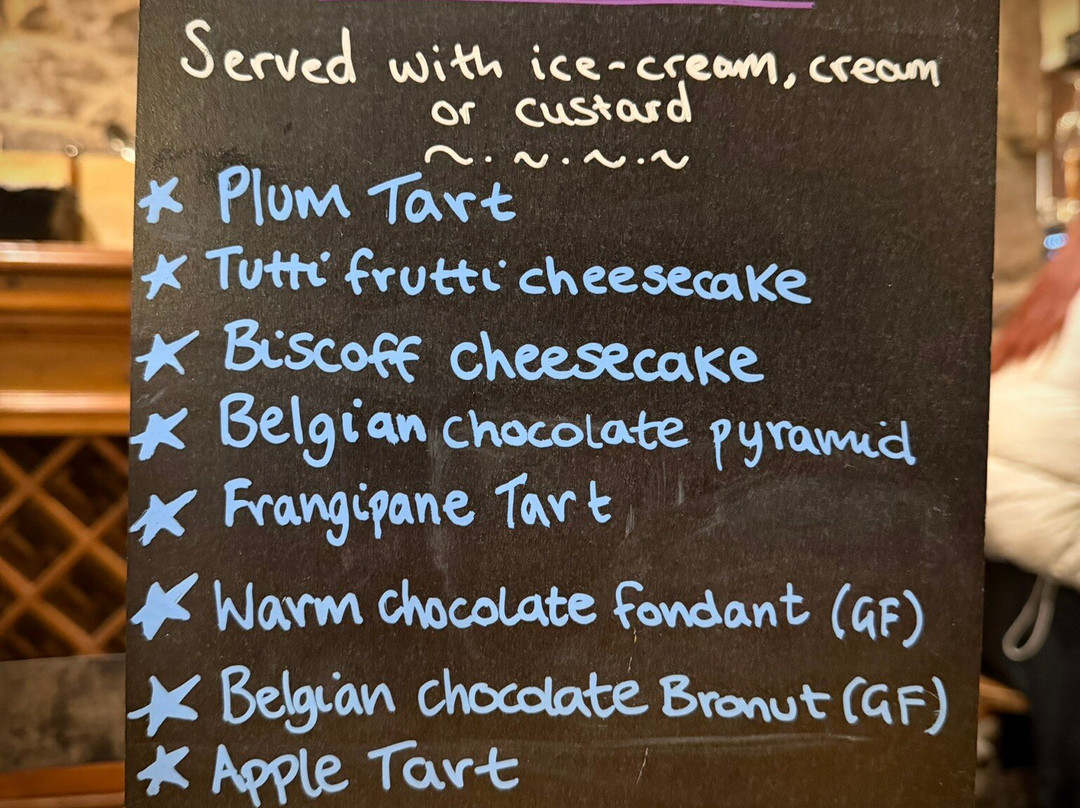 Served with ice-cream, cream
or custard
Plum Tart
Tutti frutti cheesecake
Biscoff cheesecake
Belgian chocolate pyramid
Frangipane Tart
Warm chocolate fondant (GF)
Belgian chocolate Bronut (GF)
Apple Tart